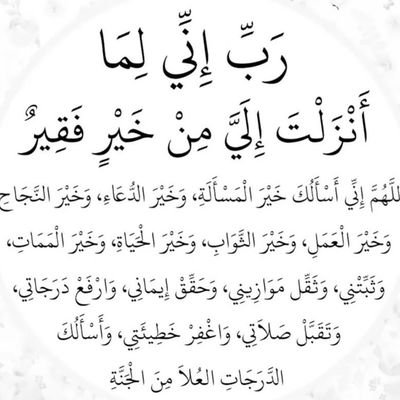 رَبِّ إِنِّي لِمَا
أَنْزَلْتَ إِلَيَّ مِنْ خَيْرٍ فَقِيرٌ
اللَّهُمَّ إِنِّي أَسْأَلُكَ خَيْرَ الْمَسْأَلَةِ، وَخَيْرَ الدُّعَاءِ، وَخَيْرَ النَّجَاحِ
وَخَيْرَ الْعَمَلِ، وَخَيْرَ الثَّوَابِ، وَخَيْرَ الْحَيَاةِ، وَخَيْرَ الْمَمَاتِ،
وَثَبِّتْنِي، وَثَقِّل مَوَازِينِي، وَحَقِّقْ إِيمَانِي، وَارْفَعْ دَرَجَاتِي،
وَتَقَبَّلْ صَلَاتِي، وَاغْفِرْ خَطِيئَتِي، وَأَسْأَلُكَ
الدَّرَجَاتِ العُلَا مِنَ الْجَنَّةِ